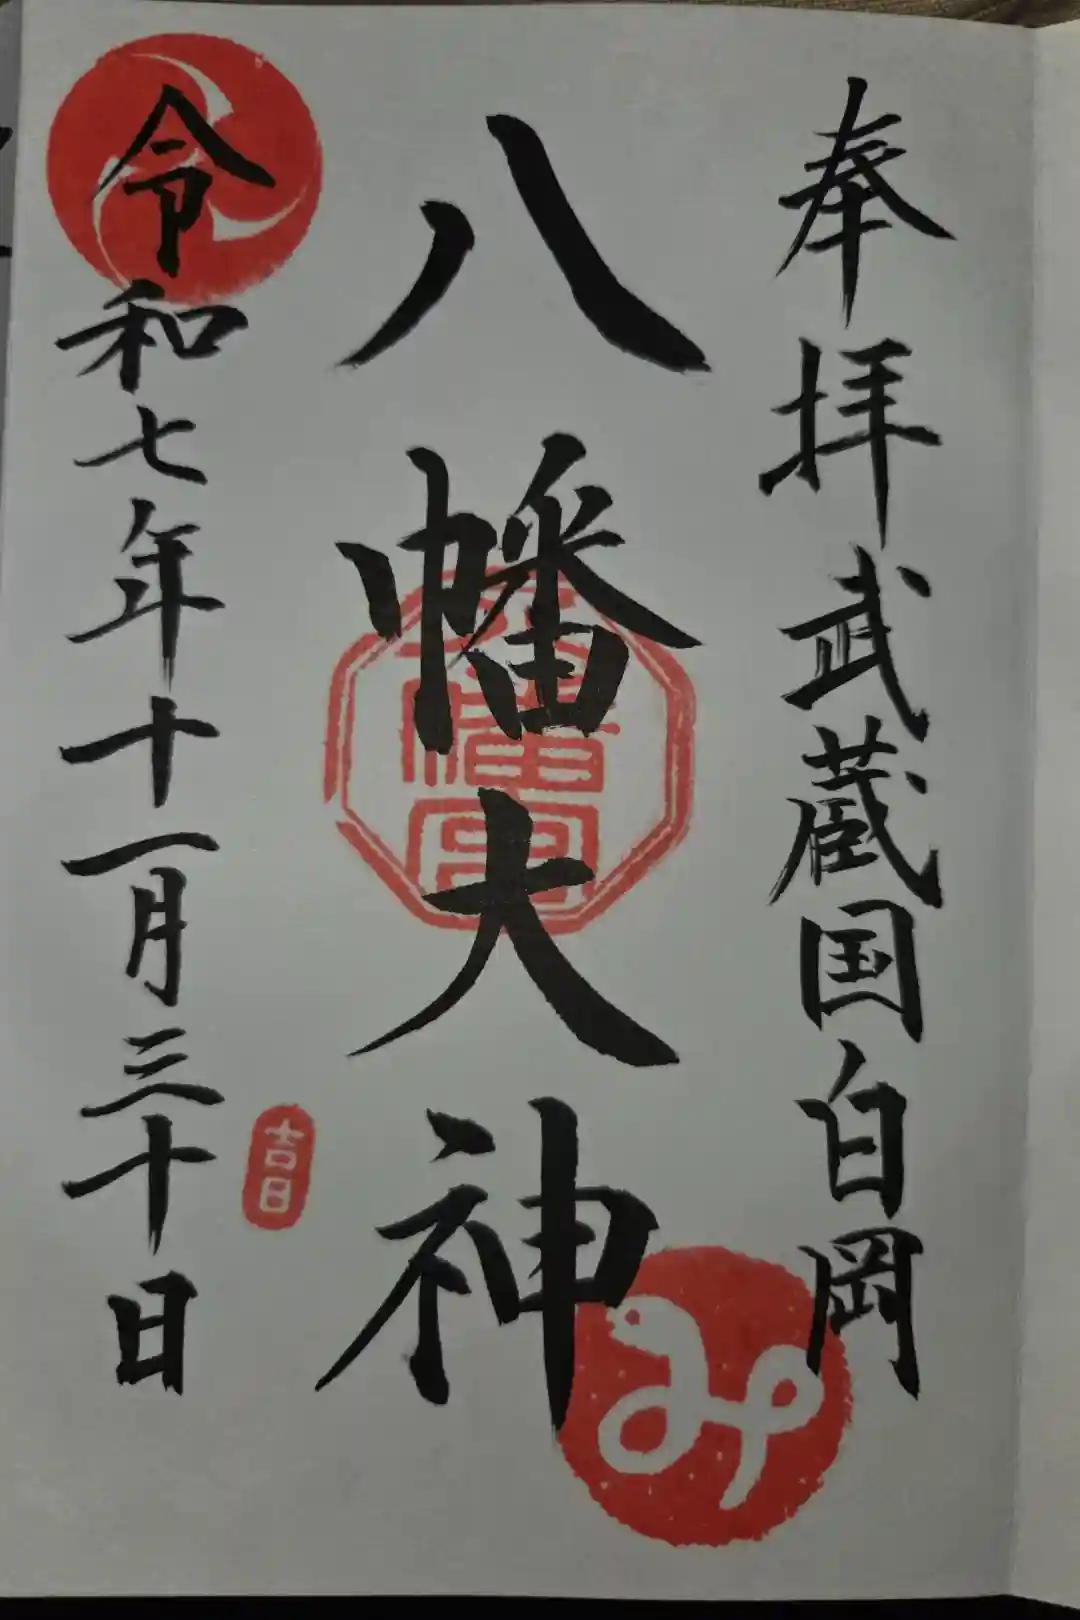 奉拝武蔵国白岡
八幡大神
令和七年十一月三十日
八幡宮
吉日
み